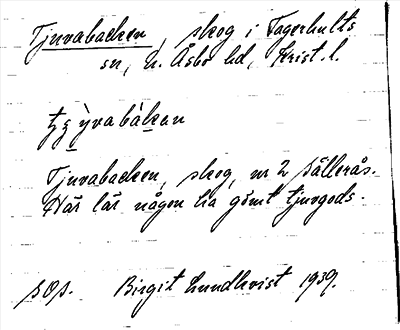 Tjuvabacken, skog i Fagerhults
sn, N. Åsbo hd, Krist. l.
Tjuvabacken, skog, nr 2 Sällerås.
Här lär någon ha gömt tjuvgods.
sOp. Birgit Lundkvist 1939.